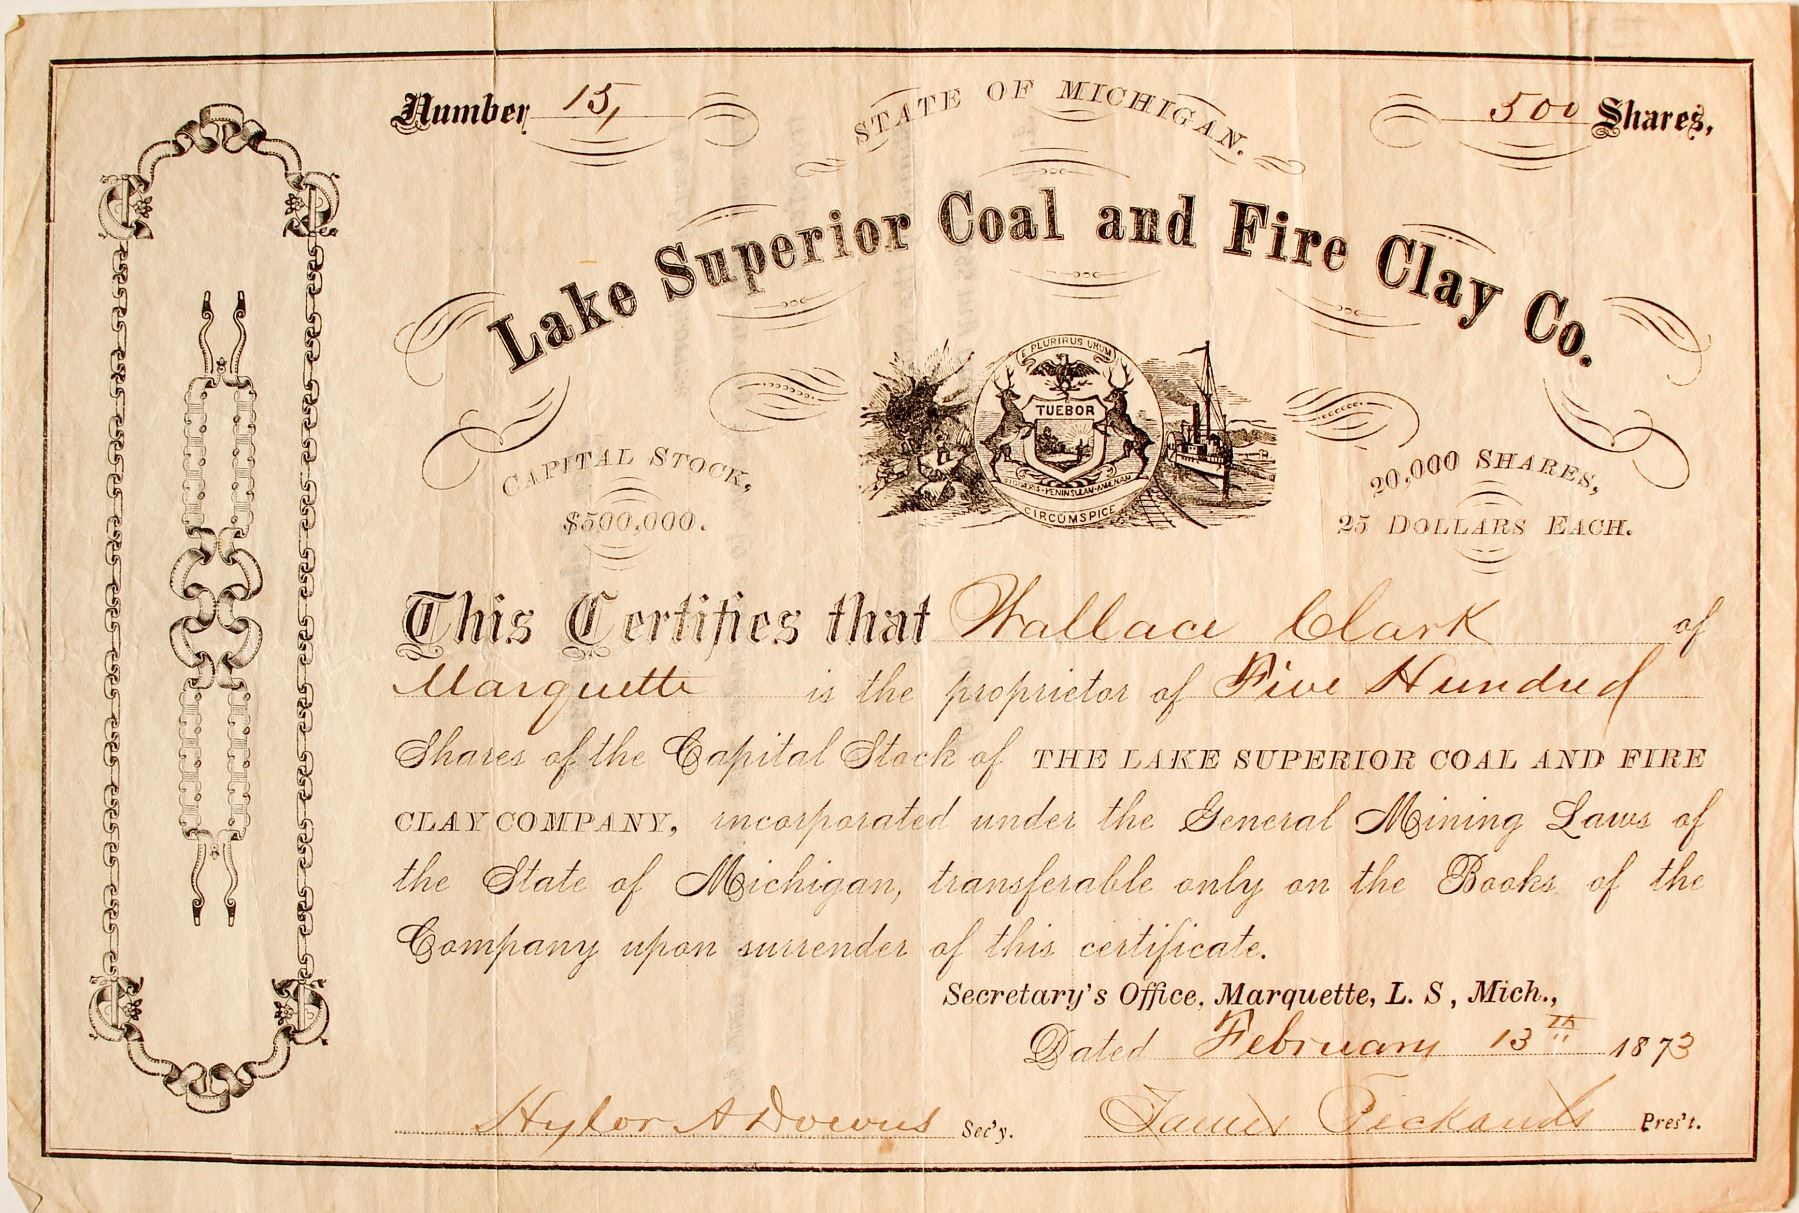 Number 15,
STATE OF MICHIGAN.
500 Shares,
Lake Superior Coal and Fire Clay Co.
E PLURIBUS UNUM
TUEBOR
CIRCUMSPICE
CAPITAL STOCK,
$500,000.
20,000 SHARES,
25 DOLLARS EACH.
This Certifies that Wallace Clark of
Marquette is the proprietor of Five Hundred
Shares of the Capital Stock of THE LAKE SUPERIOR COAL AND FIRE
CLAY COMPANY, incorporated under the General Mining Laws of
the State of Michigan, transferable only on the Books of the
Company upon surrender of this certificate.
Secretary's Office, Marquette, L. S, Mich.,
Dated February 13th 1873
A Sec'y.
James Pickands Pres't.